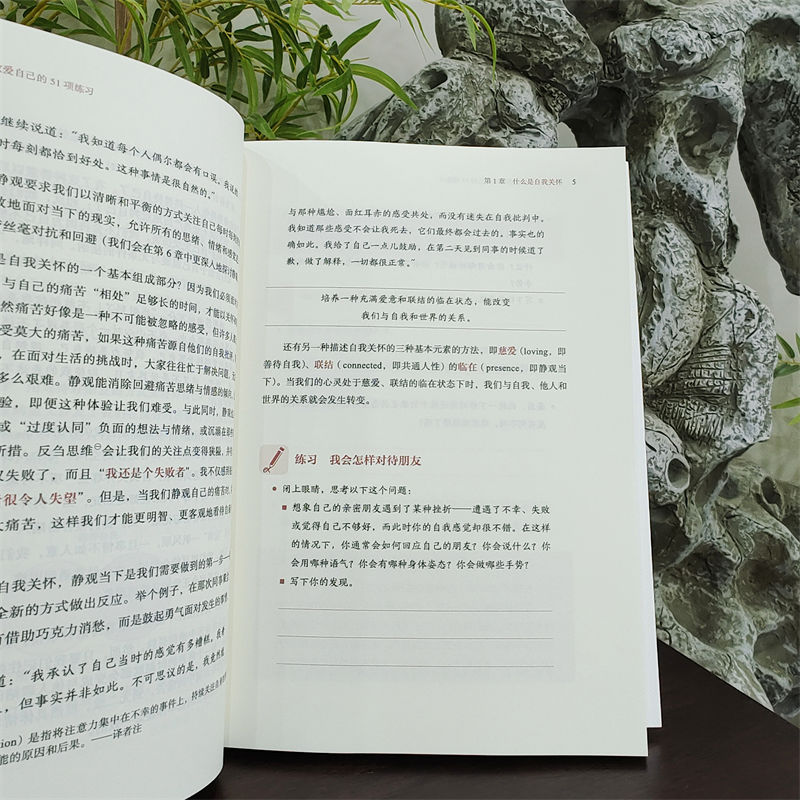 爱自己的 51 项练习
继续说道：“我知道每个人偶尔都会有口误，我说的
时每刻都恰到好处。这种事情是很自然的。”
静观要求我们以清晰和平衡的方式关注自己每时每刻的
放地面对当下的现实，允许所有的思绪、情绪和感觉
丝毫对抗和回避（我们会在第 6 章中更深入地探讨静观
是自我关怀的一个基本组成部分？因为我们必须
与自己的痛苦“相处”足够长的时间，才能以关怀
然痛苦好像是一种不可能被忽略的感受，但许多人
受莫大的痛苦，如果这种痛苦源自他们的自我批评
，在面对生活的挑战时，大家往往忙于解决问题，
多么艰难。静观能消除回避痛苦思绪与情感的倾向，
验，即便这种体验让我们难受。与此同时，静观
或“过度认同”负面的想法与情绪，或沉溺在
折措。反刍思维㊀会让我们的关注点变得狭隘，并
仅失败了，而且“我还是个失败者”。我不仅感到
很令人失望”。但是，当我们静观自己的痛苦时，
大痛苦，这样我们才能更明智、更客观地看待自
自我关怀，静观当下是我们需要做到的第一步——
全新的方式做出反应。举个例子，在那次同事聚会
有借助巧克力消愁，而是鼓起勇气面对发生的事情
道：“我承认了自己当时的感觉有多糟糕，我
，但事实并非如此。不可思议的是，我竟然能
tion）是指将注意力集中在不幸的事件上，持续关注自
能的原因和后果。——译者注
第 1 章 什么是自我关怀 5
与那种尴尬、面红耳赤的感受共处，而没有迷失在自我批判中。
我知道那些感受不会让我死去，它们最终都会过去的。事实也的
确如此。我给了自己一点儿鼓励，在第二天见到同事的时候道了
歉，做了解释，一切都很正常。”
培养一种充满爱意和联结的临在状态，能改变
我们与自我和世界的关系。
还有另一种描述自我关怀的三种基本元素的方法，即慈爱（loving，即
善待自我）、联结（connected，即共通人性）的临在（presence，即静观当
下）。当我们的心灵处于慈爱、联结的临在状态下时，我们与自我、他人和
世界的关系就会发生转变。
练习 我会怎样对待朋友
闭上眼睛，思考以下这个问题：
想象自己的亲密朋友遇到了某种挫折——遭遇了不幸、失败
或觉得自己不够好，而此时你的自我感觉却很不错。在这样
的情况下，你通常会如何回应自己的朋友？你会说什么？你
会用哪种语气？你会有哪种身体姿态？你会做哪些手势？
写下你的发现。